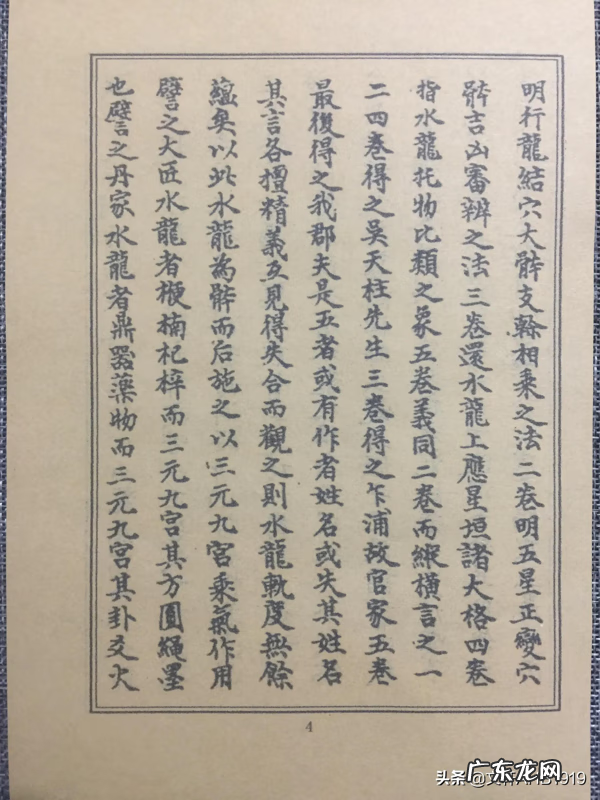 明行龍結穴大骵支幹相乘之法二卷明五星正變穴
骵吉凶審辨之法三卷還水龍上應星垣諸大格四卷
指水龍托物比類之象五卷義同二卷而縱橫言之一
二四卷得之吳天柱先生三卷得之乍浦故官家五卷
最後得之我郡夫是五者或有作者姓名或失其姓名
其言各擅精義互見得失合而觀之則水龍軌度無餘
蘊矣以此水龍為骵而后施之以三元九宮乘氣作用
譬之大匠水龍者楩楠杞梓而三元九宮其方圓繩墨
也譬之丹家水龍者鼎器藥物而三元九宮其卦爻火
4
头条
1919
广东龙网